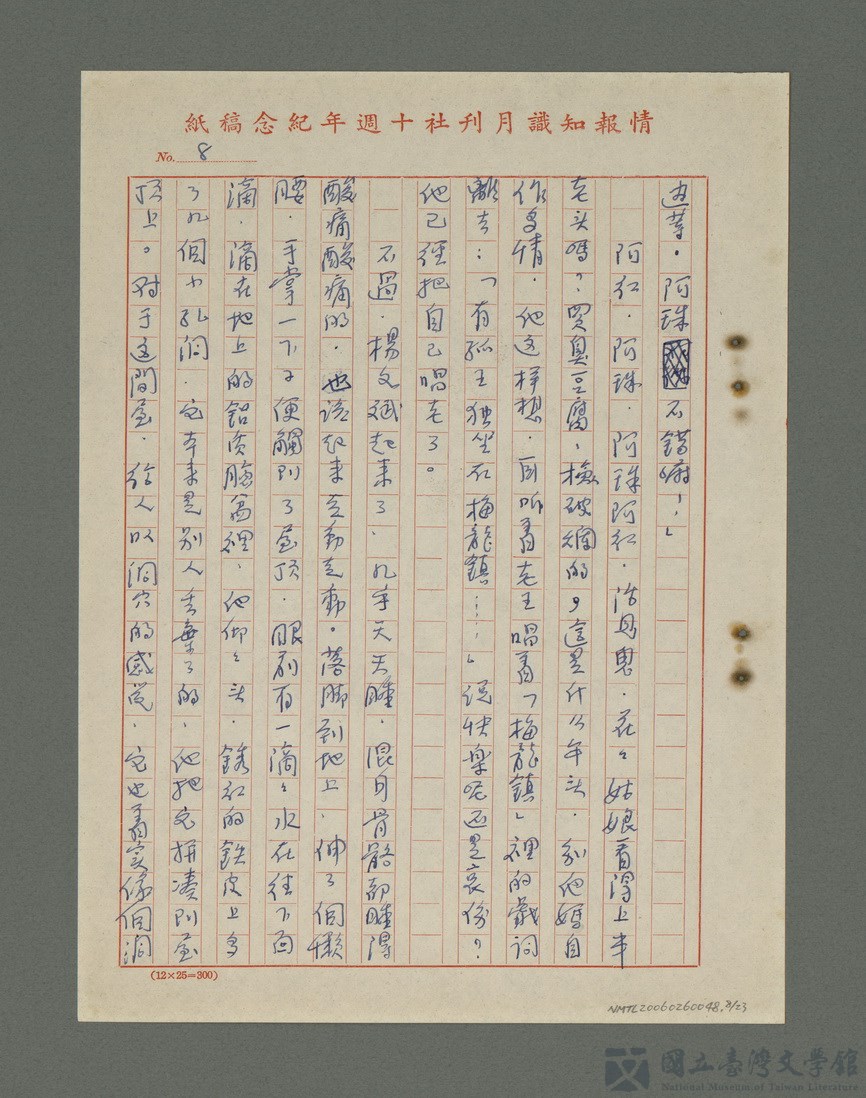 情報知識月刊社十週年紀念稿紙
No. 8
边等.阿珠不錯嘛!」
阿紅.阿珠.阿珠阿紅.活見鬼.花々姑娘看得上半
老头嗎?買臭豆腐、撿破爛的,這是什么年头.別他媽自
作多情.他这样想.因听着老王唱着「梅龍鎮」裡的戲詞
離去:「有孤王独坐在梅龍鎮……」說快樂呢还是哀傷?
他已经把自己唱老了。
不過.楊文斌起来了.几乎天天睡.混身骨骼都睡得
酸痛酸痛的.也該起来走動走動。落脚到地上.伸了個懶
腰.手掌一下子便觸到了屋顶.眼前有一滴々水在往下面
滴.滴在地上的鋁质臉盆裡.他仰々头.銹红的鉄皮上多
了几個小孔洞.它本来是别人丢棄了的.他把它拼凑到屋
顶上。对于这間屋.给人以洞穴的感觉.它也着实像個洞
(12×25=300)
NMTL20060260048,8/23
國立臺灣文學館
National Museum of Taiwan Literature